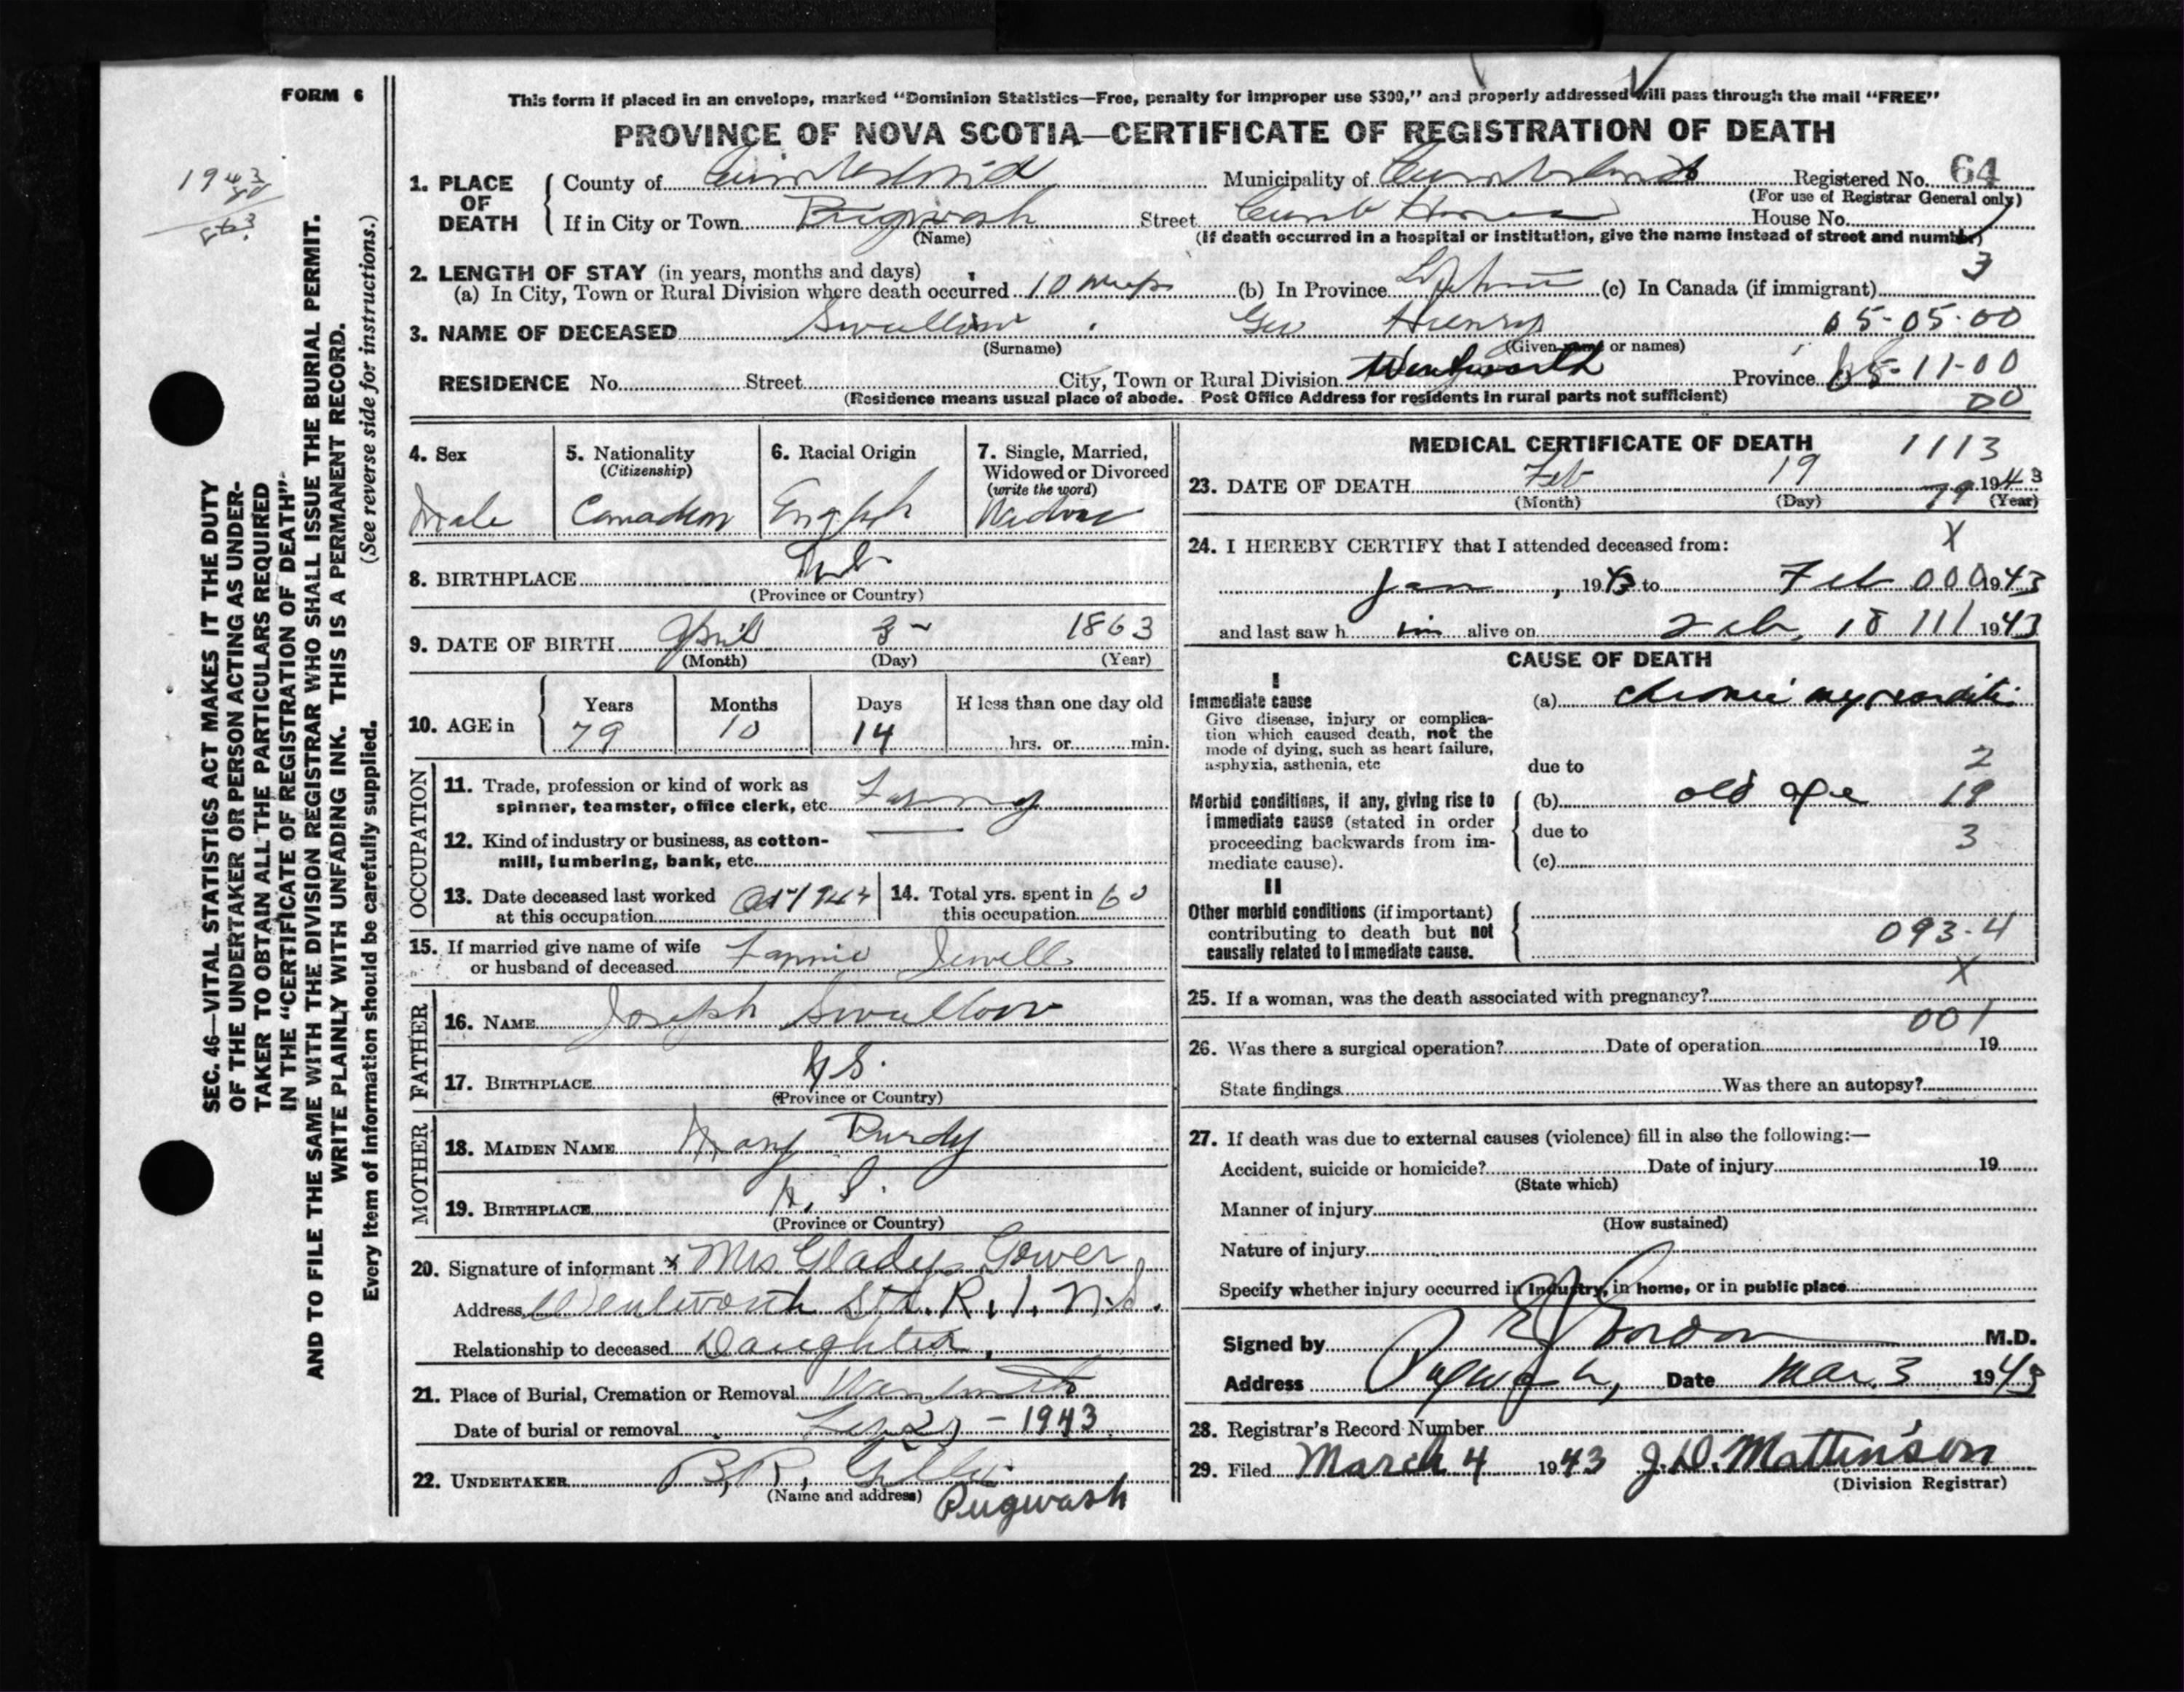 FORM 6
This form if placed in an envelope, marked "Dominion Statistics—Free, penalty for improper use $300," and properly addressed will pass through the mail "FREE"
PROVINCE OF NOVA SCOTIA—CERTIFICATE OF REGISTRATION OF DEATH
1943
80
SEC. 46—VITAL STATISTICS ACT MAKES IT THE DUTY
OF THE UNDERTAKER OR PERSON ACTING AS UNDER-
TAKER TO OBTAIN ALL THE PARTICULARS REQUIRED
IN THE "CERTIFICATE OF REGISTRATION OF DEATH"
AND TO FILE THE SAME WITH THE DIVISION REGISTRAR WHO SHALL ISSUE THE BURIAL PERMIT.
WRITE PLAINLY WITH UNFADING INK. THIS IS A PERMANENT RECORD.
Every item of information should be carefully supplied. (See reverse side for instructions.)
1. PLACE OF DEATH
County of Cumberland Municipality of Cumberland Registered No. 64
(For use of Registrar General only)
If in City or Town Pugwash Street House No.
(Name) (If death occurred in a hospital or institution, give the name instead of street and number)
2. LENGTH OF STAY (in years, months and days)
3
(a) In City, Town or Rural Division where death occurred 10 (b) In Province Lifetime (c) In Canada (if immigrant)
3. NAME OF DECEASED Swallow Geo Henry 05-05-00
(Surname) (Given name or names)
RESIDENCE No. Street City, Town or Rural Division Wentworth Province 11-00
(Residence means usual place of abode. Post Office Address for residents in rural parts not sufficient) 00
4. Sex
Male
5. Nationality
(Citizenship)
Canadian
6. Racial Origin
English
7. Single, Married,
Widowed or Divorced
(write the word)
8. BIRTHPLACE
(Province or Country)
9. DATE OF BIRTH April 3 1863
(Month) (Day) (Year)
10. AGE in
Years Months Days If less than one day old
79 10 14 hrs. or min.
OCCUPATION
11. Trade, profession or kind of work as
spinner, teamster, office clerk, etc.
12. Kind of industry or business, as cotton-
mill, lumbering, bank, etc.
13. Date deceased last worked
at this occupation
14. Total yrs. spent in
this occupation 60
15. If married give name of wife
or husband of deceased Fannie Jewell
FATHER
16. NAME Joseph Swallow
17. BIRTHPLACE N.S.
(Province or Country)
MOTHER
18. MAIDEN NAME Mary Purdy
19. BIRTHPLACE N.S.
(Province or Country)
20. Signature of informant x Mrs Gladys Gower
Address Wentworth Stn. R.1. N.S.
Relationship to deceased Daughter
21. Place of Burial, Cremation or Removal Wentworth
Date of burial or removal 1943
22. UNDERTAKER B.R. Gillis
(Name and address) Pugwash
MEDICAL CERTIFICATE OF DEATH 1113
23. DATE OF DEATH Feb 19 1943
(Month) (Day) (Year)
79
24. I HEREBY CERTIFY that I attended deceased from: X
Jan, 1943 to Feb 000 1943
and last saw him alive on Feb, 18 111 1943
CAUSE OF DEATH
I
Immediate cause
Give disease, injury or complica-
tion which caused death, not the
mode of dying, such as heart failure,
asphyxia, asthenia, etc
(a) chronic myocarditis
due to 2
Morbid conditions, if any, giving rise to
immediate cause (stated in order
proceeding backwards from im-
mediate cause).
(b) old age 19
due to 3
(c)
II
Other morbid conditions (if important)
contributing to death but not
causally related to immediate cause.
093-4
X
25. If a woman, was the death associated with pregnancy?
001
26. Was there a surgical operation? Date of operation 19
State findings Was there an autopsy?
27. If death was due to external causes (violence) fill in also the following:—
Accident, suicide or homicide? Date of injury 19
(State which)
Manner of injury
(How sustained)
Nature of injury
Specify whether injury occurred in industry, in home, or in public place
Signed by Gordon M.D.
Address Pugwash, Date Mar. 3 1943
28. Registrar's Record Number
29. Filed March 4 1943 J.D. Mattinson
(Division Registrar)